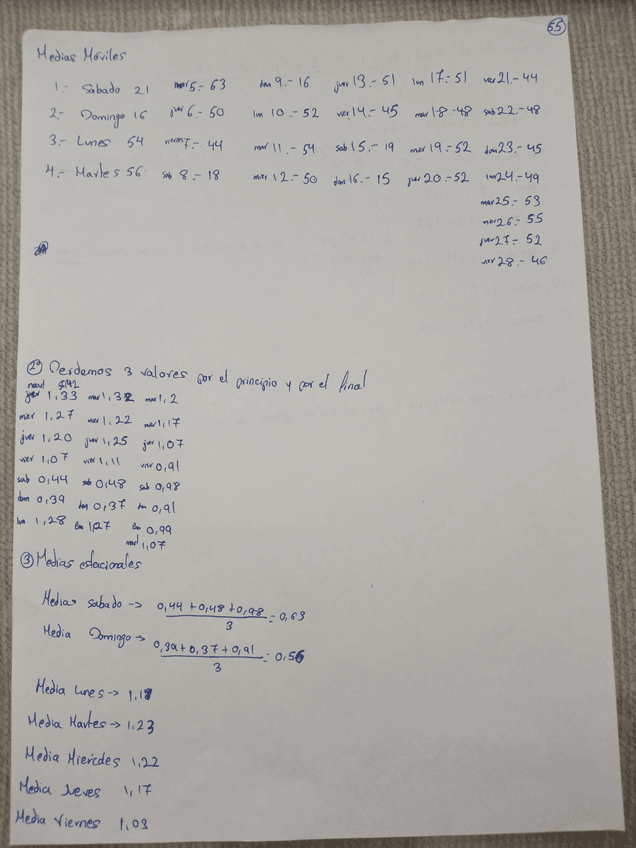 55
Medias Móviles
1.- Sabado 21 mar 5.- 63 dom 9.- 16 juev 13.- 51 lun 17.- 51 vier 21.- 44
2.- Domingo 16 juev 6.- 50 lun 10.- 52 vier 14.- 45 mar 18.- 48 sab 22.- 48
3.- Lunes 54 viern 7.- 44 mar 11.- 54 sab 15.- 19 mier 19.- 52 dom 23.- 45
4.- Martes 56 sab 8.- 18 mier 12.- 50 dom 16.- 15 juev 20.- 52 lun 24.- 49
mar 25.- 53
mier 26.- 55
juev 27.- 52
vier 28.- 46
2º Perdemos 3 valores por el principio y por el final
1,33 mar 1,32 mar 1,2
mier 1,27 mier 1,22 mier 1,17
juev 1,20 juev 1,25 juev 1,07
vier 1,07 vier 1,11 vier 0,91
sab 0,44 sab 0,48 sab 0,98
dom 0,39 dom 0,37 dom 0,91
lun 1,28 lun 1,27 lun 0,99
mart 1,07
3 Medias estacionales
Media sabado -> 0,44 + 0,48 + 0,98 / 3 = 0,63
Media Domingo -> 0,39 + 0,37 + 0,91 / 3 = 0,56
Media Lunes -> 1,18
Media Martes -> 1,23
Media Miercoles 1,22
Media Jueves 1,17
Media Viernes 1,03